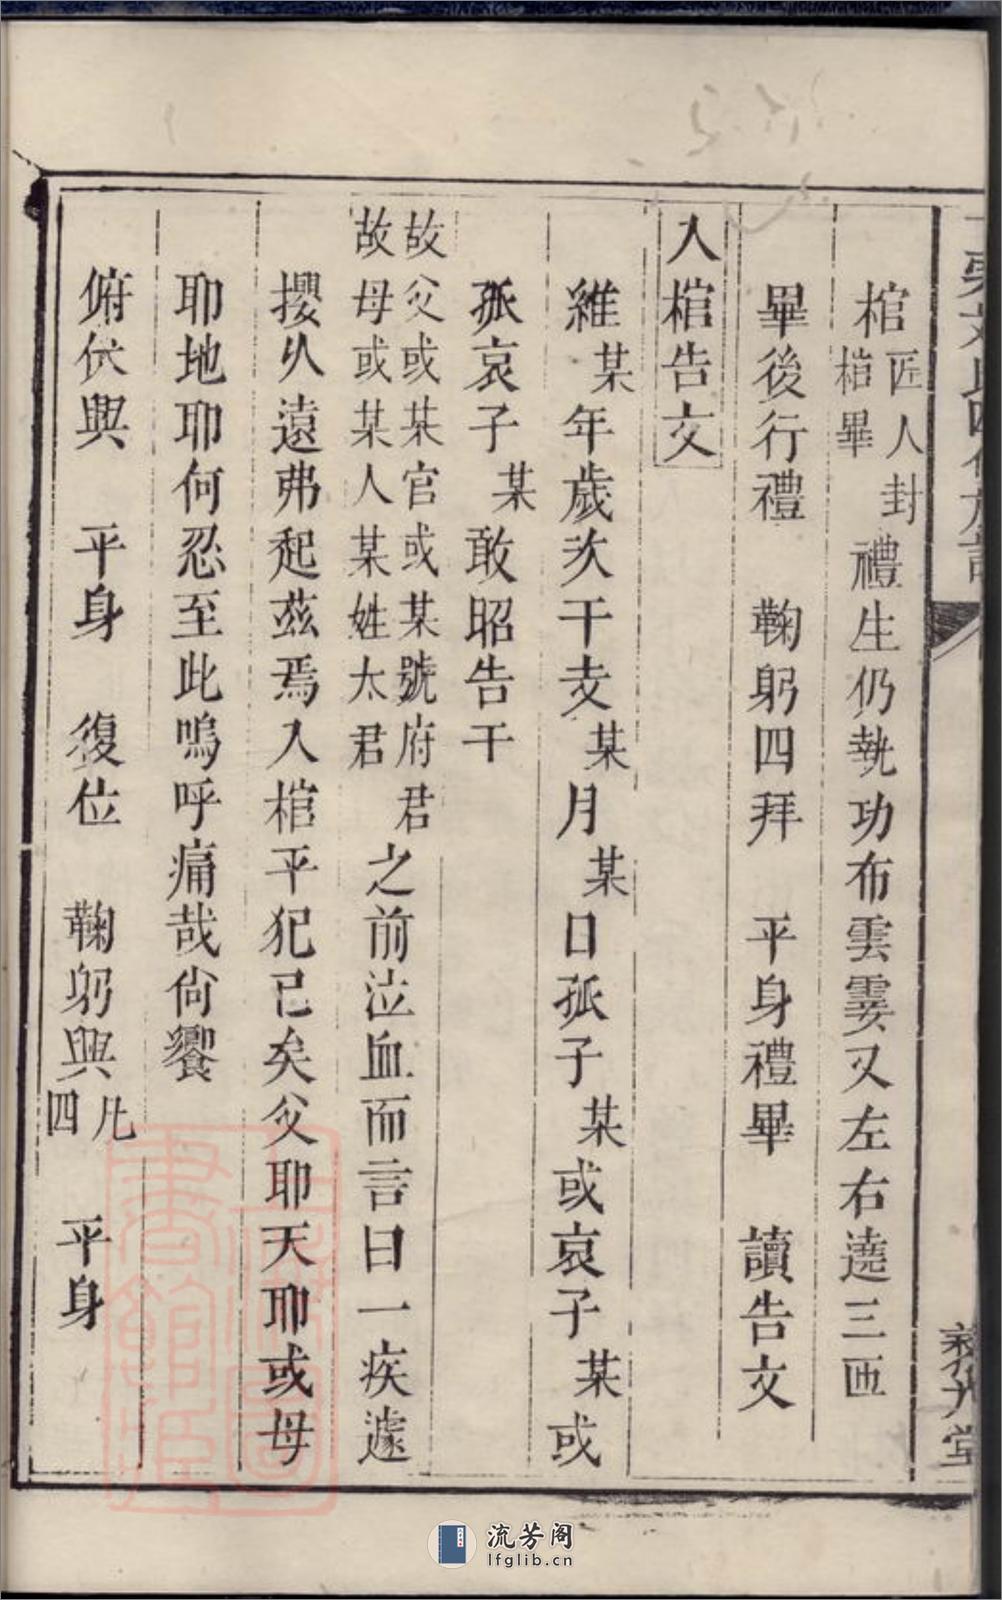 棺匠人封棺畢禮生仍執功布雲霎又左右遶三匝
畢後行禮　鞠躬四拜　平身禮畢　讀告文
入棺告文
維某年歲次干支某月某日孤子某或哀子某或
孤哀子某敢昭告干
故父或某官或某號府君故母或某人某姓太君之前泣血而言曰一疾遽
攖乆遠弗起茲焉入棺平犯已矣父耶天耶或母
耶地耶何忍至此嗚呼痛哉尙饗
俯伏興　平身　復位　鞠躬興凡四　平身
流芳阁
lfglib.cn